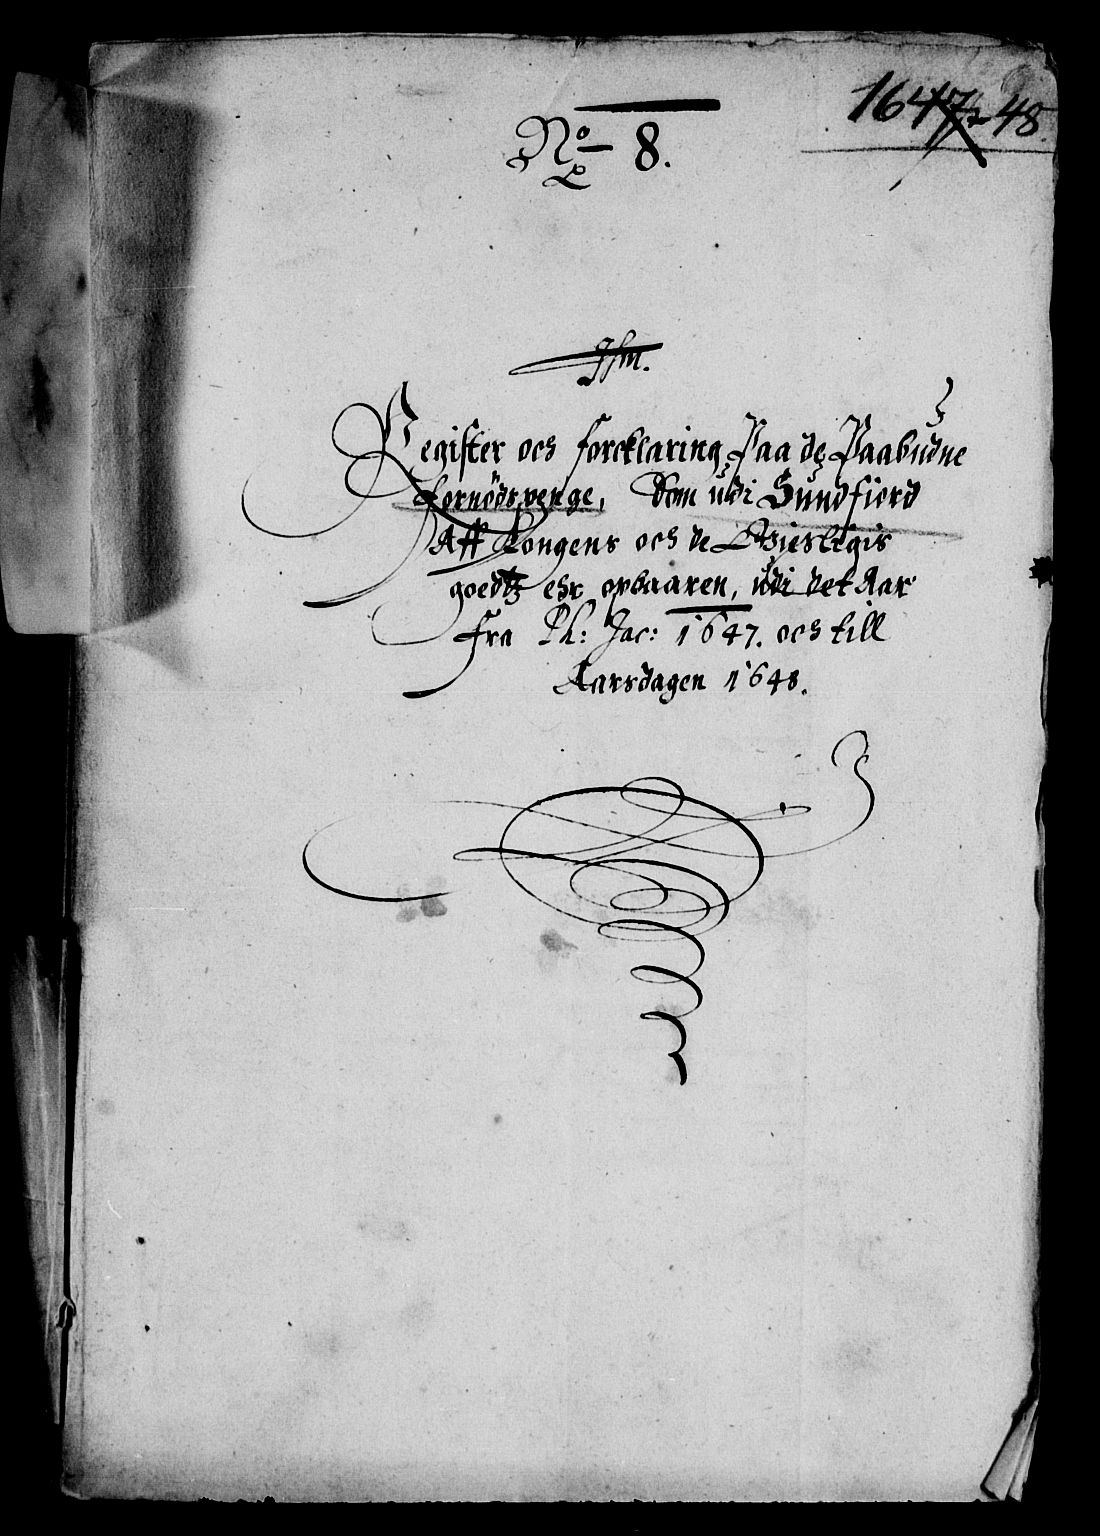 1647-48.
No 8.
Register och forcklaring Paa de Paabudne
Kornödspenge, Som udi Sundfiord
Aff Kongens och de Gieistligis
goedtz ehr opbaaren, udi det Aar
fra Ph: Jac: 1647. och till
Aarsdagen 1648.